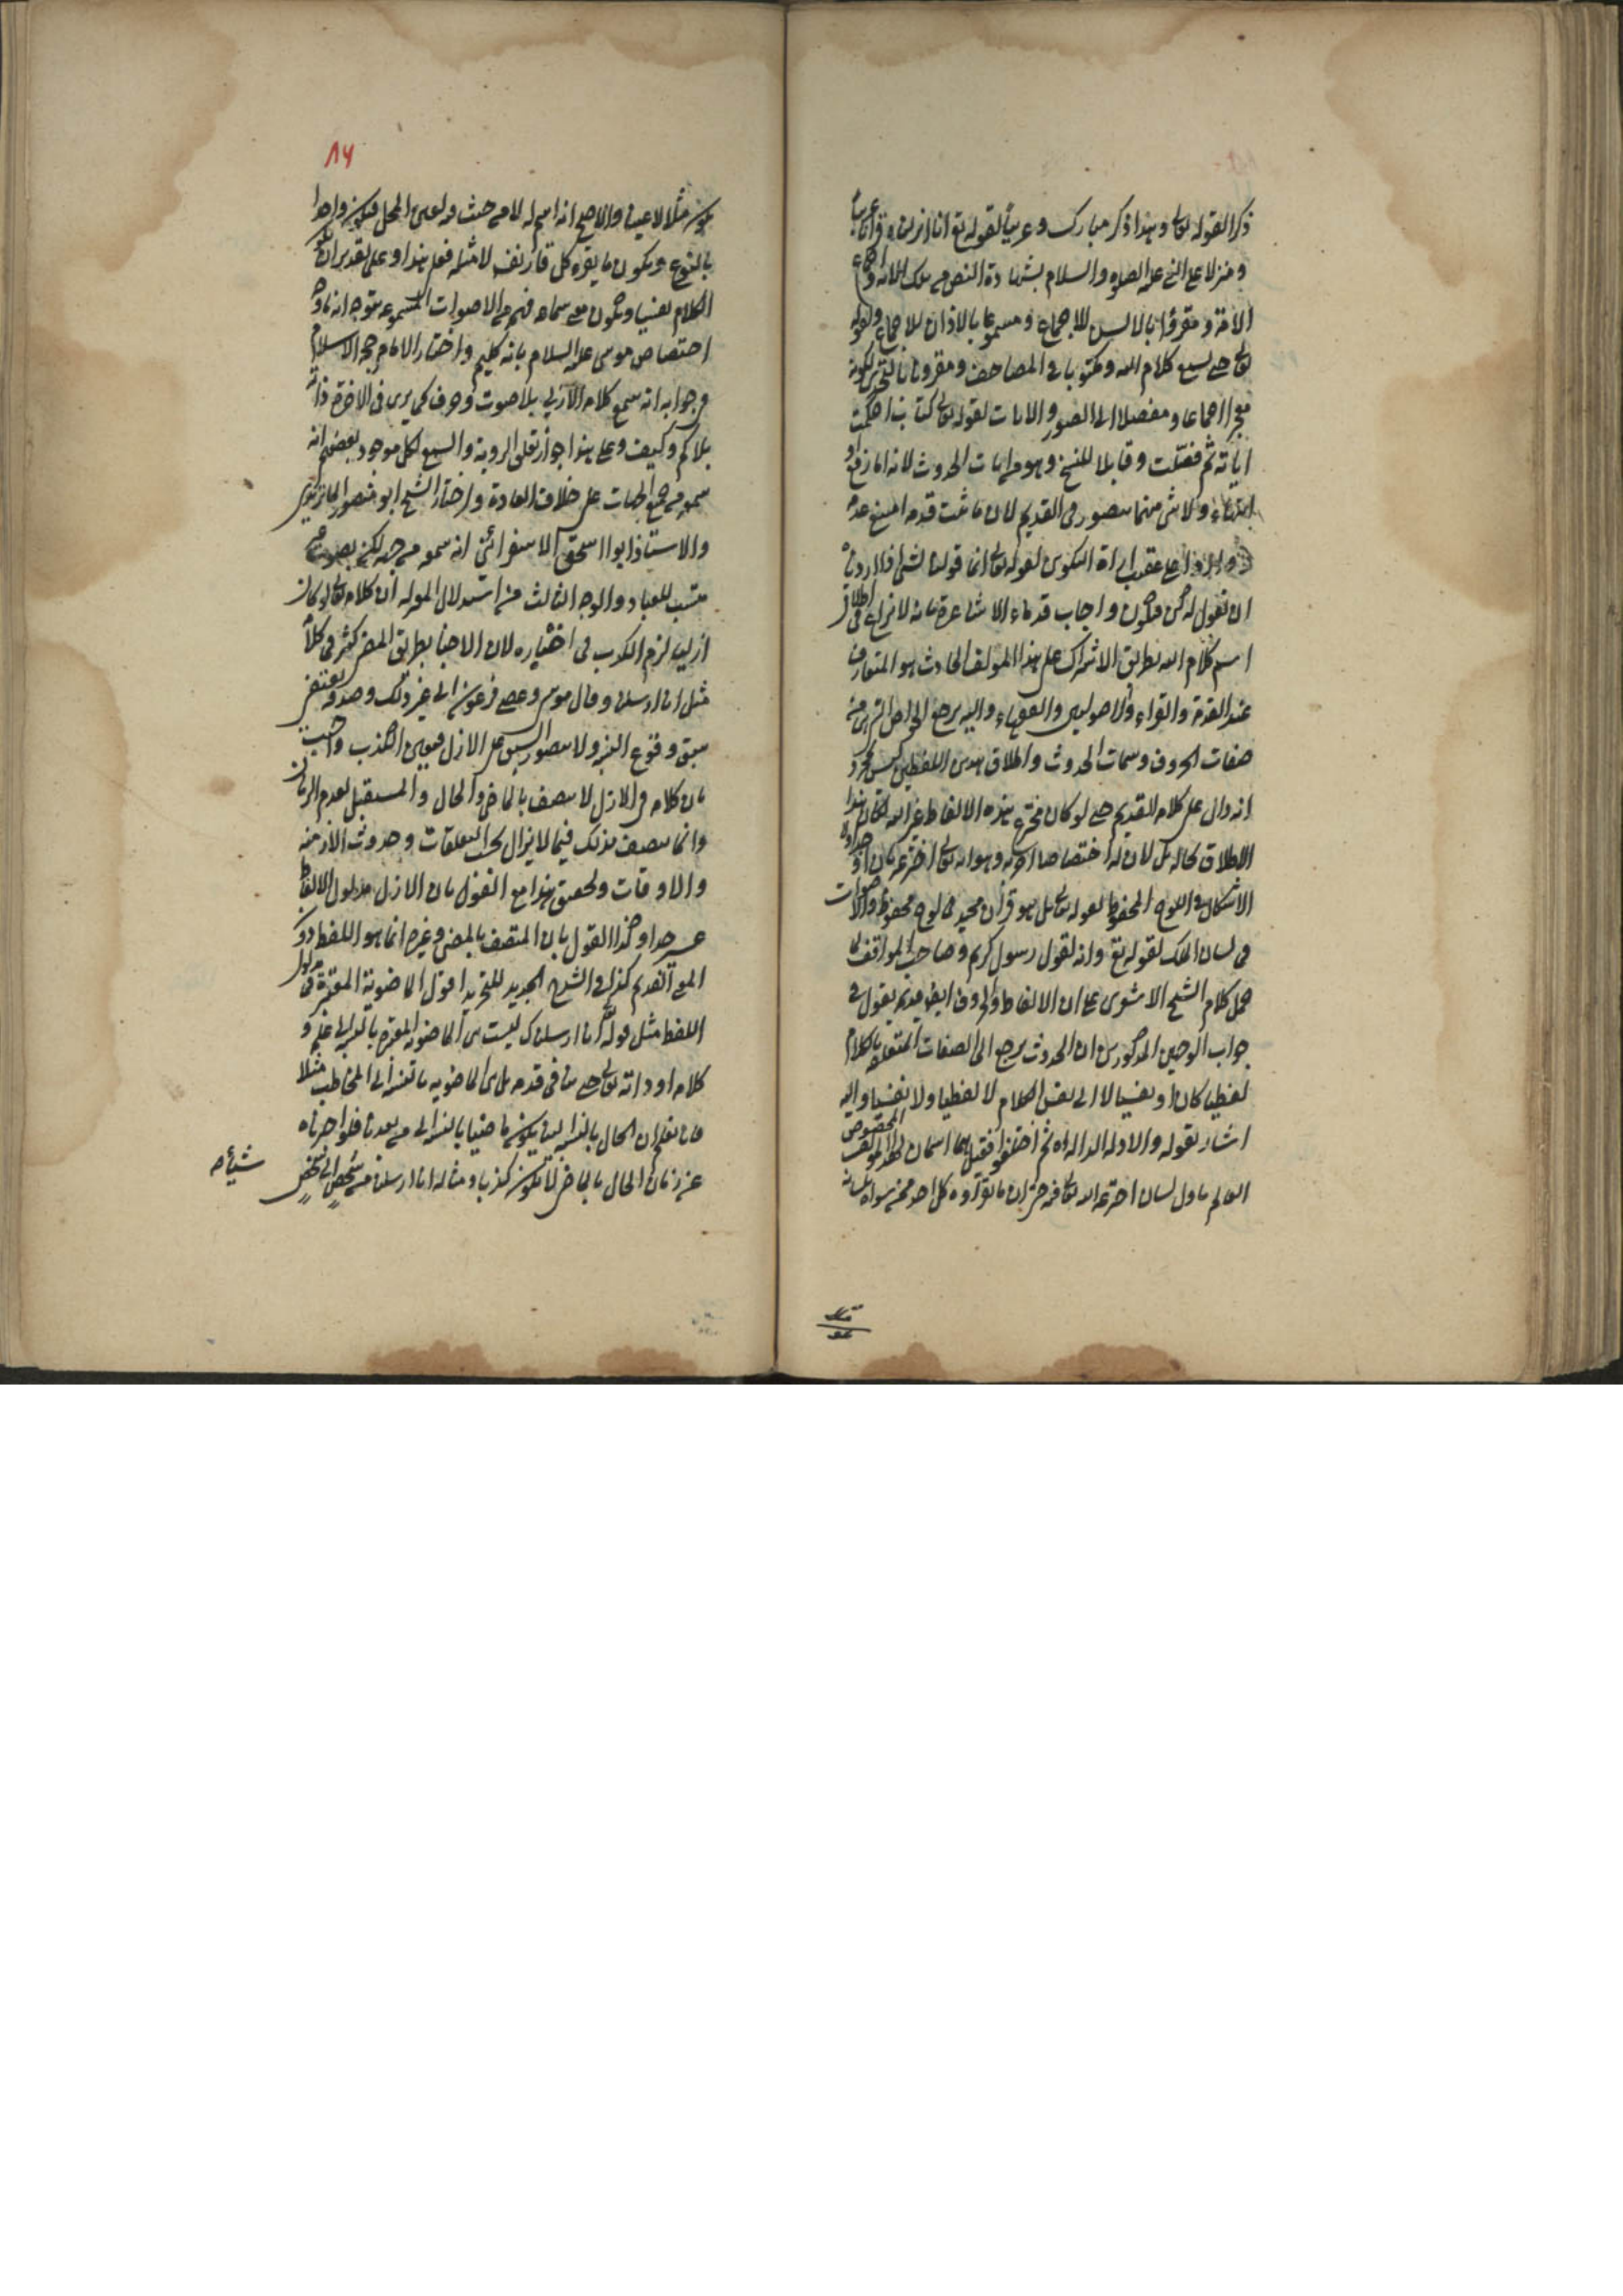 ذكرا لقوله تعالى وهذا ذكر مبارك وعربيا لقوله تع انا انزلناه قرآنا عربيا
ومنزلا على النبي عليه الصلوة والسلام بشهادة النص من تلك الآية واجماع
الامة ومقروا بالالسن للاجماع ومسموعا بالاذان للاجماع ولقوله
تعالى حتى يسمع كلام الله ومكتوبا في المصاحف ومقرونا بالتحدي لكونه
معجزا اجماعا ومفصلا الى السور والايات لقوله تعالى كتاب احكمت
اياته ثم فصلت وقابلا للنسخ وهو من ايات الحدوث لانه اما رفع او
انتهاء ولا شئ منهما يتصور في القديم لان ما ثبت قدمه امتنع عدمه
وواردا عقيب ارادة التكوين لقوله تعالى انما قولنا لشئ اذا اردناه
ان نقول له كن فيكون واجاب قدماء الاشاعرة بانه لا نزاع في اطلاق
اسم كلام الله بطريق الاشتراك على هذا المؤلف الحادث وهو المتعارف
عند العامة والقراء والاصوليين والفقهاء واليه يرجع الخواص التي هي من
صفات الحروف وسمات الحدوث واطلاق هذين اللفظين ليس بمجرد
انه دال على كلامه القديم حتى لو كان مخترع هذه الالفاظ غير الله لكان هذا
الاطلاق بحاله بل لان له اختصاصا اخر به وهو انه تعالى اخترعه بان اوجد اولا
الاشكال في اللوح المحفوظ لقوله تعالى بل هو قرآن مجيد في لوح محفوظ والاصوات
في لسان الملك لقوله تع وانه لقول رسول كريم وصاحب المواقف لما
حمل كلام الشيخ الاشعري على ان الالفاظ والحروف ايض قديمة يقول في
جواب الوجهين المذكورين ان الحدوث يرجع الى الصفات المتعلقة بالكلام
لفظيا كان او نفسيا لا الى نفس الكلام لا لفظيا ولا نفسيا واليه
اشار بقوله والادلة الدالة اه ثم اختلفوا فقيل هما اسمان لهذا المؤلف المخصوص
القائم باول لسان اخترعه الله تعالى فيه حتى ان ما يقرؤه كل احد ممن سواه بلسانه
٨٦
يكون مثلا لا عينا والاصح انه اسم له لا من حيث تعين المحل فيكون واحدا
بالنوع ويكون ما يقرؤه كل قار نفسه لا مثله فعلى هذا وعلى تقدير ان يكون
الكلام نفسيا ويكون معنى سماعه فهمه من الاصوات المسموعة يتوجه انه ما وجه
اختصاص موسى عليه السلام بانه كليم واختار الامام حجة الاسلام
وجوابه انه سمع كلامه الازلي بلا صوت وحرف كما يرى في الاخرة ذاته
بلا كم وكيف وعلى هذا جواز تعلق الروية والسمع لكل موجود بعضهم انه
سمعه من جميع الجهات على خلاف العادة واختار الشيخ ابو منصور الماتريدي
والاستاذ ابوا اسحق الاسفرائني انه سمعه من جهة لكن بصوت غير
مكتسب للعباد والوجه الثالث من استدلال المعتزلة ان كلامه تعالى لو كان
ازليا لزم الكذب في اخباره لان الاخبار بطريق المضي كثير في كلامه
مثل انا ارسلنا وقال موسى وعصى فرعون الى غير ذلك وصدقه يقتضي
سبق وقوع النسبة ولا يتصور السبق على الازل فيتعين الكذب واجيب
بان كلامه في الازل لا يتصف بالماضي والحال والمستقبل لعدم الزمان
وانما يتصف بذلك فيما لا يزال بحسب التعلقات وحدوث الازمنة
والاوقات وتحقيق هذا مع القول بان الازلي مدلول الالفاظ
عسير جدا وكذا القول بان المتصف بالمضي وغيره انما هو اللفظ دون
المعنى القديم كذا في الشرح الجديد للتجريد اقول الماضوية المعتبرة في مدلول
اللفظ مثل قوله تع انا ارسلناك ليست هي الماضوية المعتبرة بالنسبة الى علمه و
كلامه او ذاته تعالى حتى ينافي قدمه بل هي الماضوية بالنسبة الى المخاطب مثلا
فانا نعلم ان الحال بالنسبة الينا يكون ماضيا بالنسبة الى من بعدنا فلو اخبرناه
عن زمان الحال بالماضي لا يكون كذبا ومثاله انا ارسلنا من شخص الى شخص
شيئا صح